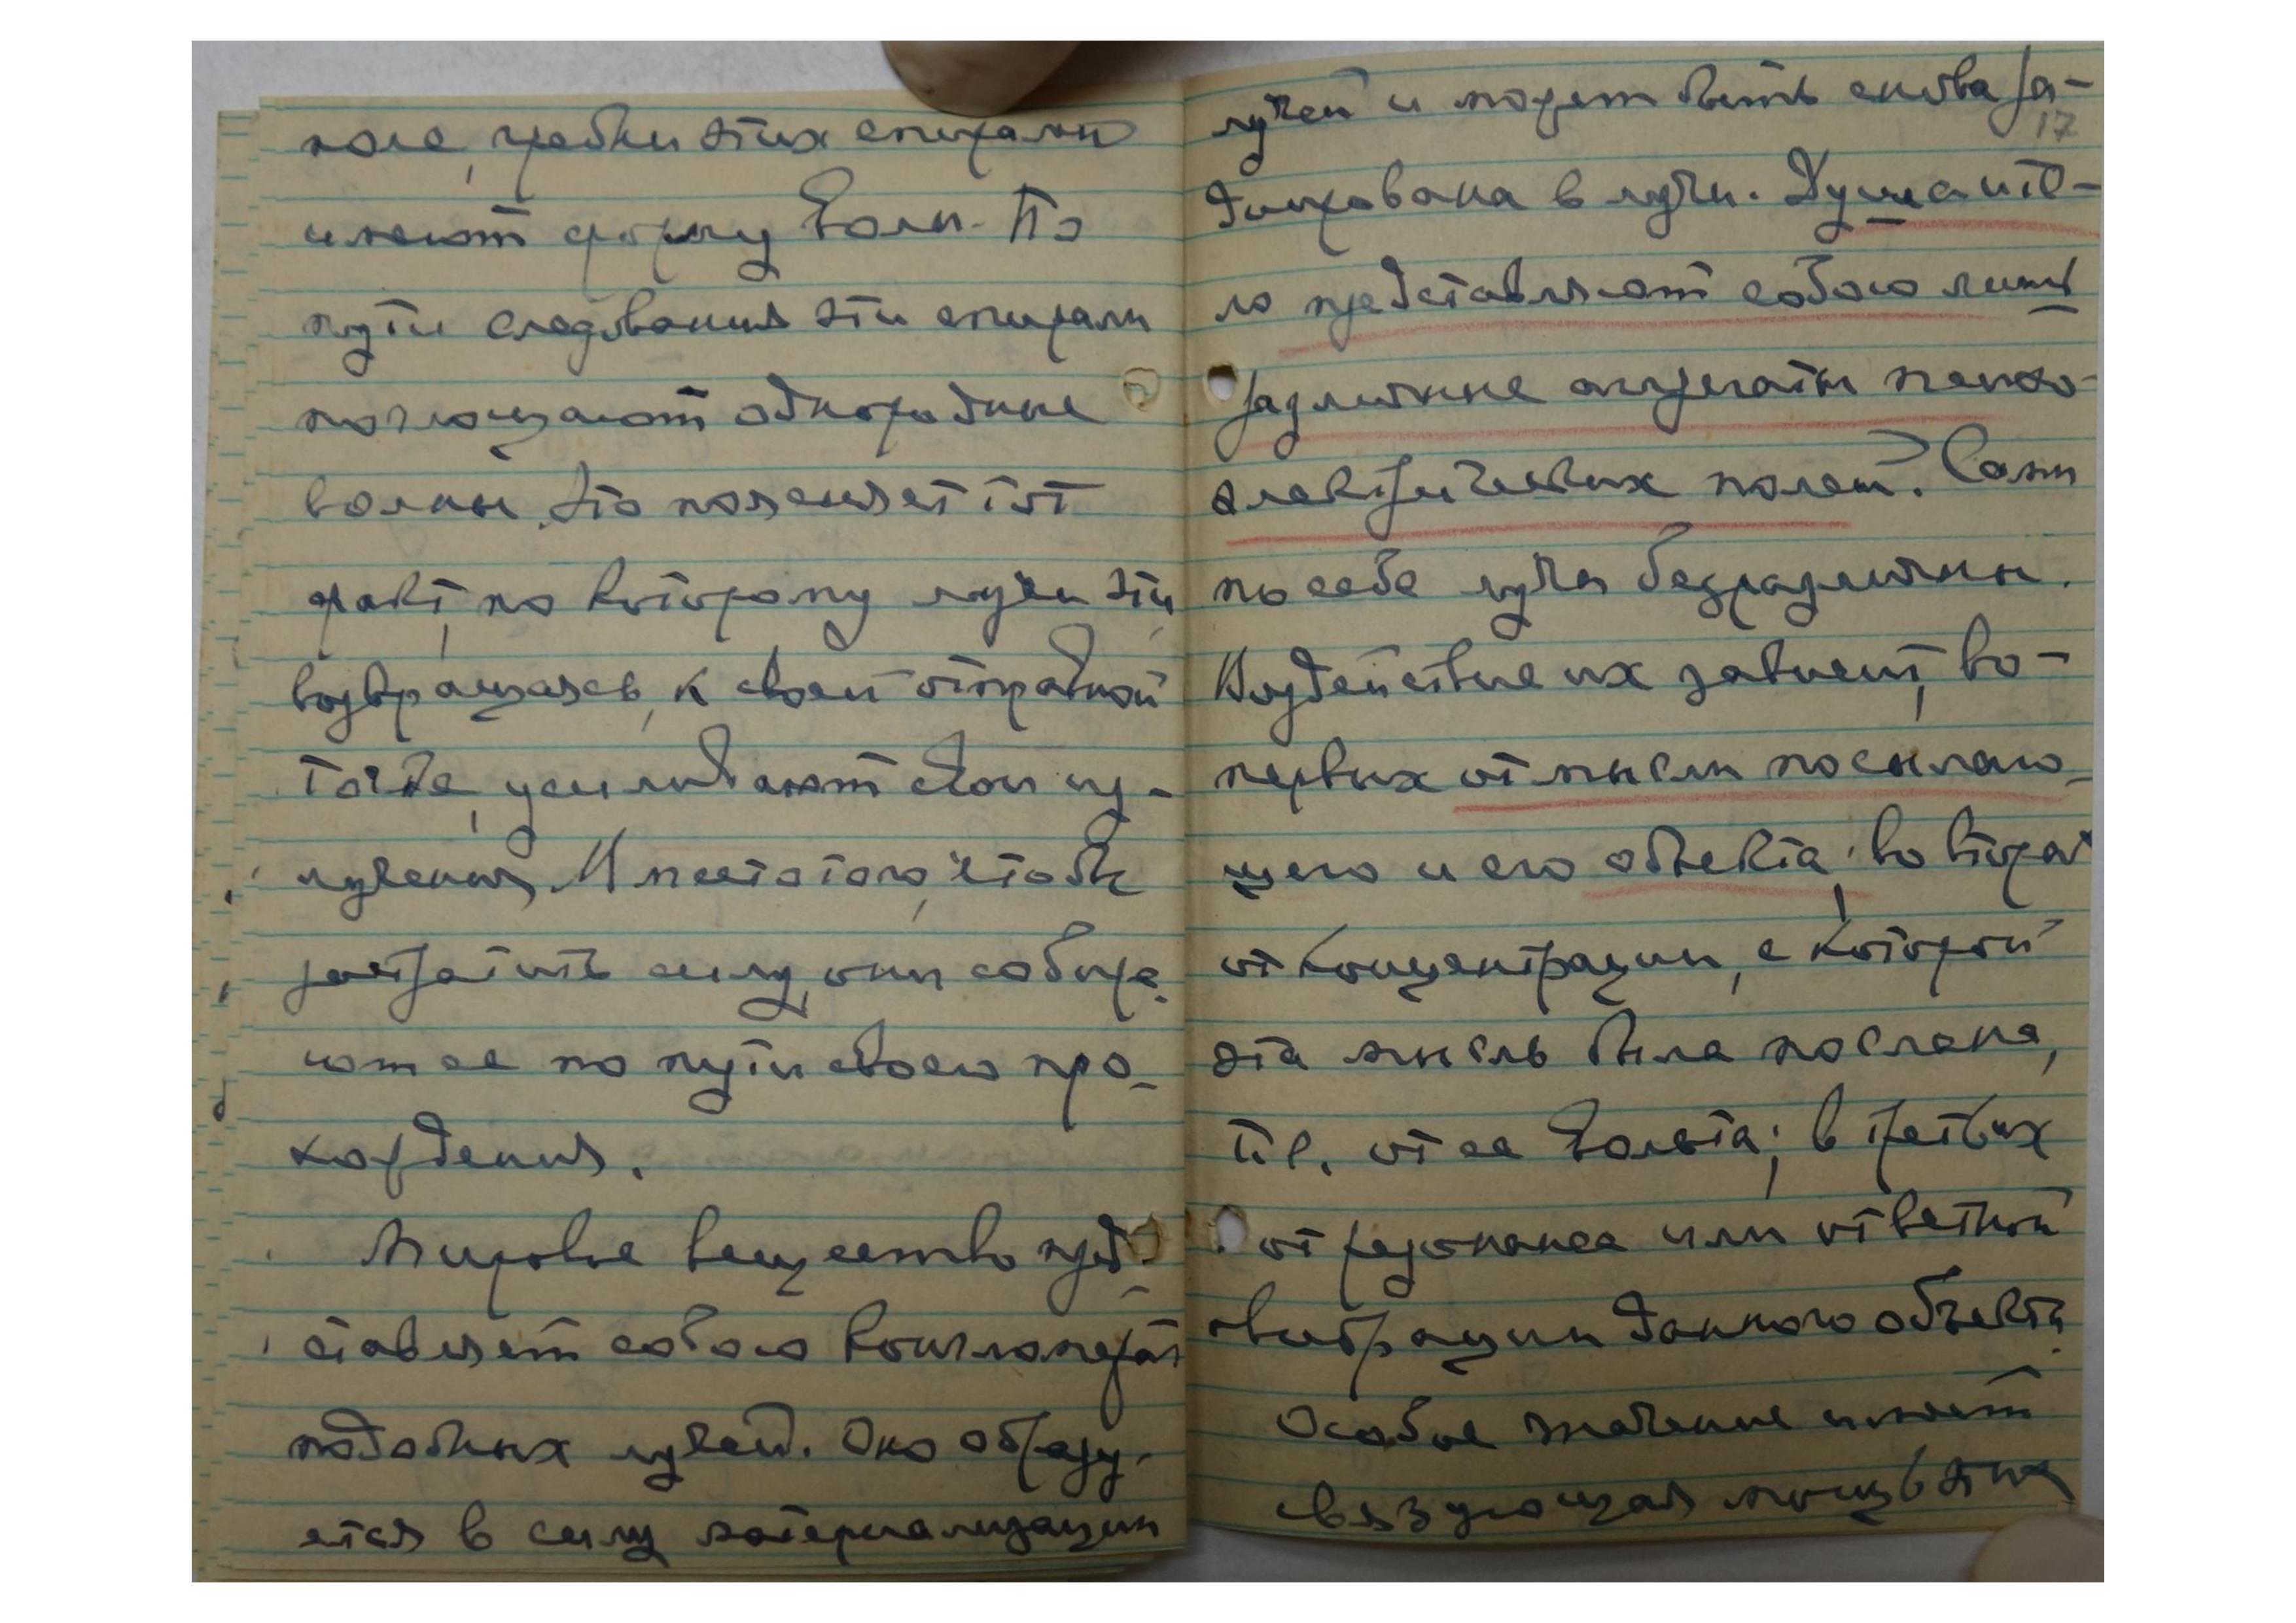 поле, гребни этих спирали
имеют форму волн. По
пути следования эти спирали
поглощают однородные
волны. Это поясняет тот
факт, по которому лучи эти,
возвращаясь, к своей отправной
точке, усиливают свои из-
лучения. Вместо того, чтобы
растратить силу, они собира-
ют ее по пути своего про-
хождения.
Мировое вещество пред-
ставляет собою конгломерат
подобных лучей. Оно образу-
ется в силу материализации
лучей и может быть снова ра-
17
диирована в лучи. Душа и те-
ло представляют собою лишь
различные агрегаты психо-
электрических полей. Сами
по себе лучи безразличны.
Воздействие их зависит, во-
первых от мысли посылаю-
щего и его объекта; во вторых
от концентрации, с которой
эта мысль была послана,
т.е. от ее вольта; в третьих
от резонанса или ответной
вибрации данного объекта.
Особое значение имеет
связующая мощь этих